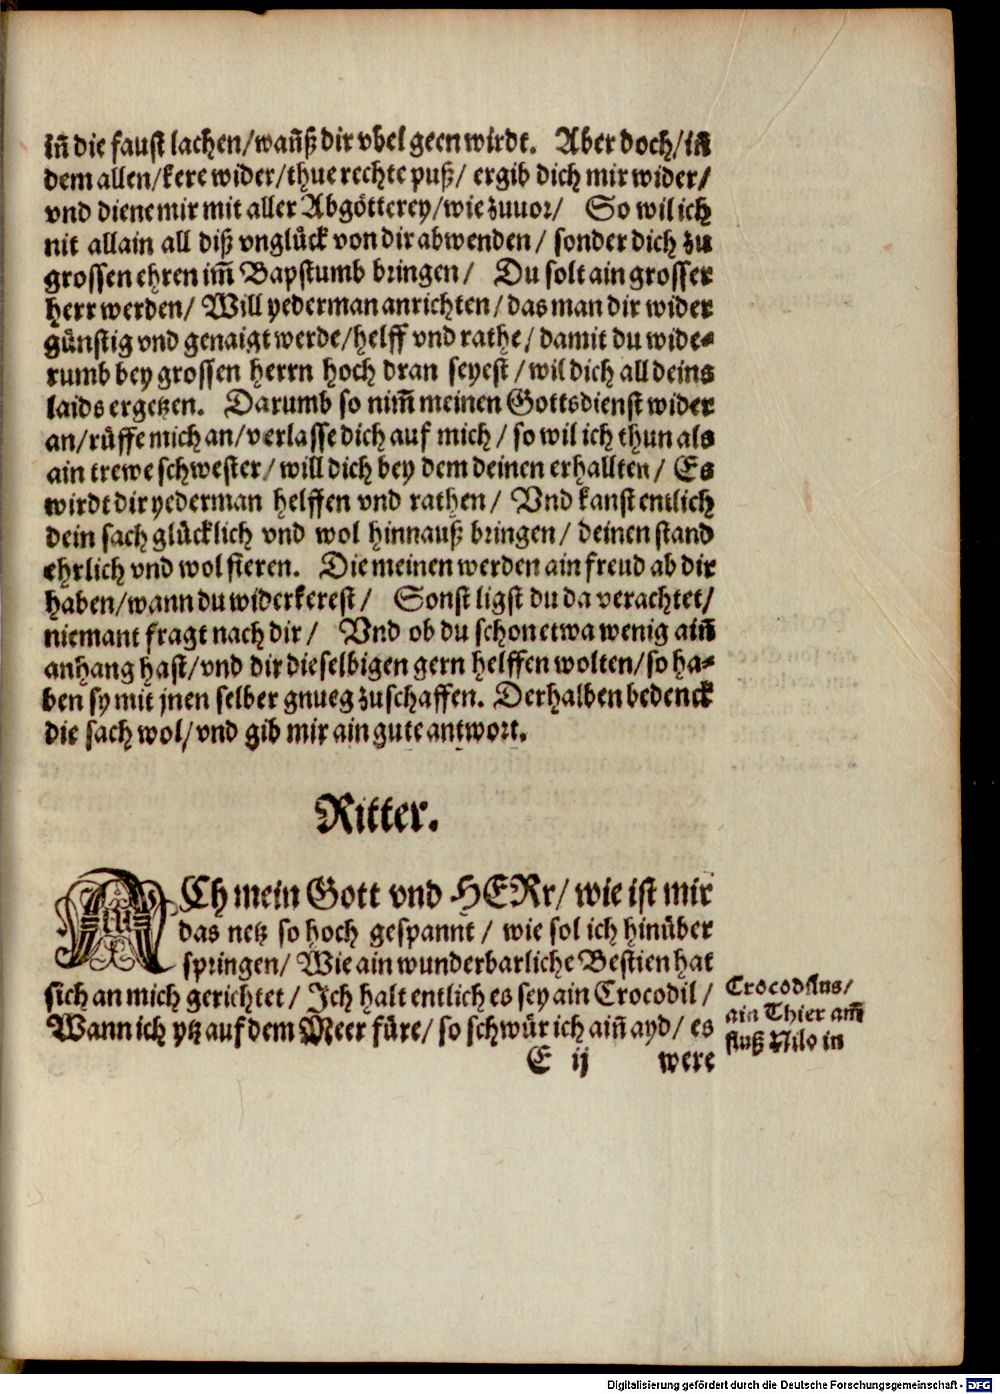 in̄ die faust lachen/wan̄ß dir vbel geen wirdt. Aber doch/in̄
dem allen/kere wider/thue rechte puß/ ergib dich mir wider/
vnd diene mir mit aller Abgötterey/wie zuuor/ So wil ich
nit allain all diß vnglück von dir abwenden/ sonder dich zu
grossen ehren im̄ Bapstumb bringen/ Du solt ain grosser
herr werden/ Will yederman anrichten/das man dir wider
günstig vnd genaigt werde/helff vnd rathe/damit du wide⸗
rumb bey grossen herrn hoch dran seyest/wil dich all deins
laids ergetzen. Darumb so nim̄ meinen Gottsdienst wider
an/rüffe mich an/verlasse dich auf mich/ so wil ich thun als
ain trewe schwester/will dich bey dem deinen erhallten/ Es
wirdt dir yederman helffen vnd rathen/ Vnd kanst entlich
dein sach glücklich vnd wol hinnauß bringen/ deinen stand
ehrlich vnd wol fieren. Die meinen werden ain freud ab dir
haben/wann du widerkerest/ Sonst ligst du da verachtet/
niemant fragt nach dir/ Vnd ob du schon etwa wenig ain̄
anhang hast/vnd dir dieselbigen gern helffen wolten/so ha⸗
ben sy mit jnen selber gnueg zuschaffen. Derhalben bedenck
die sach wol/vnd gib mir ain gute antwort.
Ritter.
ACh mein Gott vnd HERr/ wie ist mir
das netz so hoch gespannt/ wie sol ich hinüber
springen/ Wie ain wunderbarliche Bestien hat
sich an mich gerichtet/ Ich halt entlich es sey ain Crocodil/
Wann ich ytz auf dem Meer füre/ so schwür ich ain̄ ayd/ es
Crocodilus/
ain Thier am̄
fluß Nilo in
E ij were
Digitalisierung gefördert durch die Deutsche Forschungsgemeinschaft - DFG